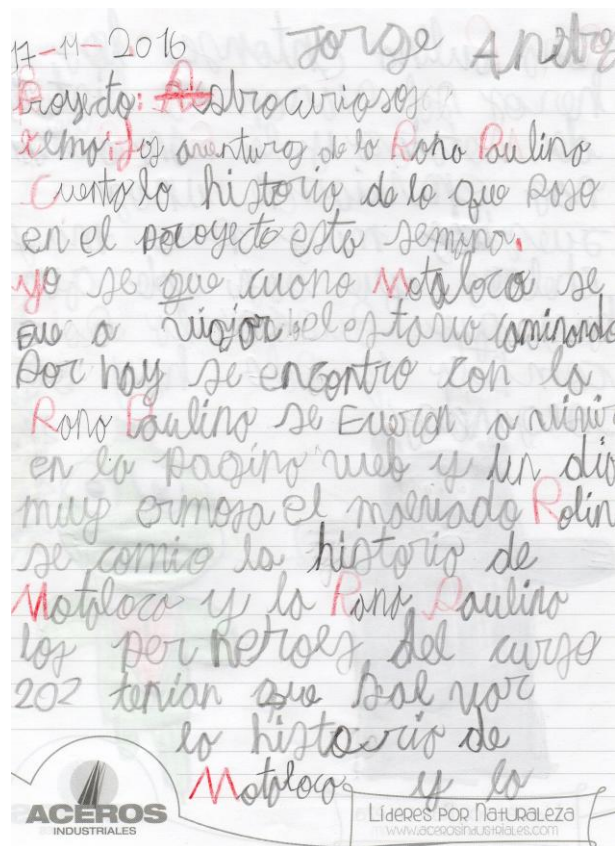 17-11-2016 Jorge Andre
Proyecto: Astrocuriosos
Tema: Las aventuras de la Rana Paulina
Cuenta la historia de lo que paso
en el proyecto esta semana.
yo se que cuano Mataloca se
Eue a viajar el estava caminando
Por hay se encontro con la
Rana Paulina se Eueron a vivir
en la pagina web y un dia
muy ermosa el malvado Rolin
se comio la historia de
Mataloca y la Rana Paulina
los per heroes del curso
202 tenian que sal var
la historia de
Mataloca y la
ACEROS
INDUSTRIALES
Líderes por Naturaleza
www.acerosindustriales.com